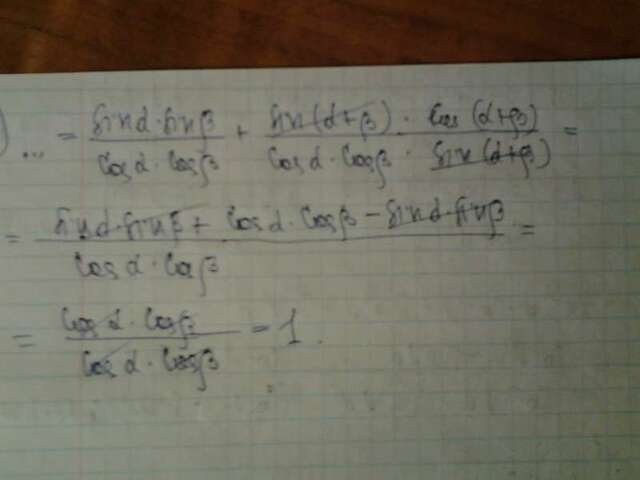 ) ... = sinα·sinβ / cosα·cosβ + sin(α+β)·cos(α+β) / cosα·cosβ·sin(α+β) =
= sinα·sinβ + cosα·cosβ − sinα·sinβ / cosα·cosβ =
= cosα·cosβ / cosα·cosβ = 1.